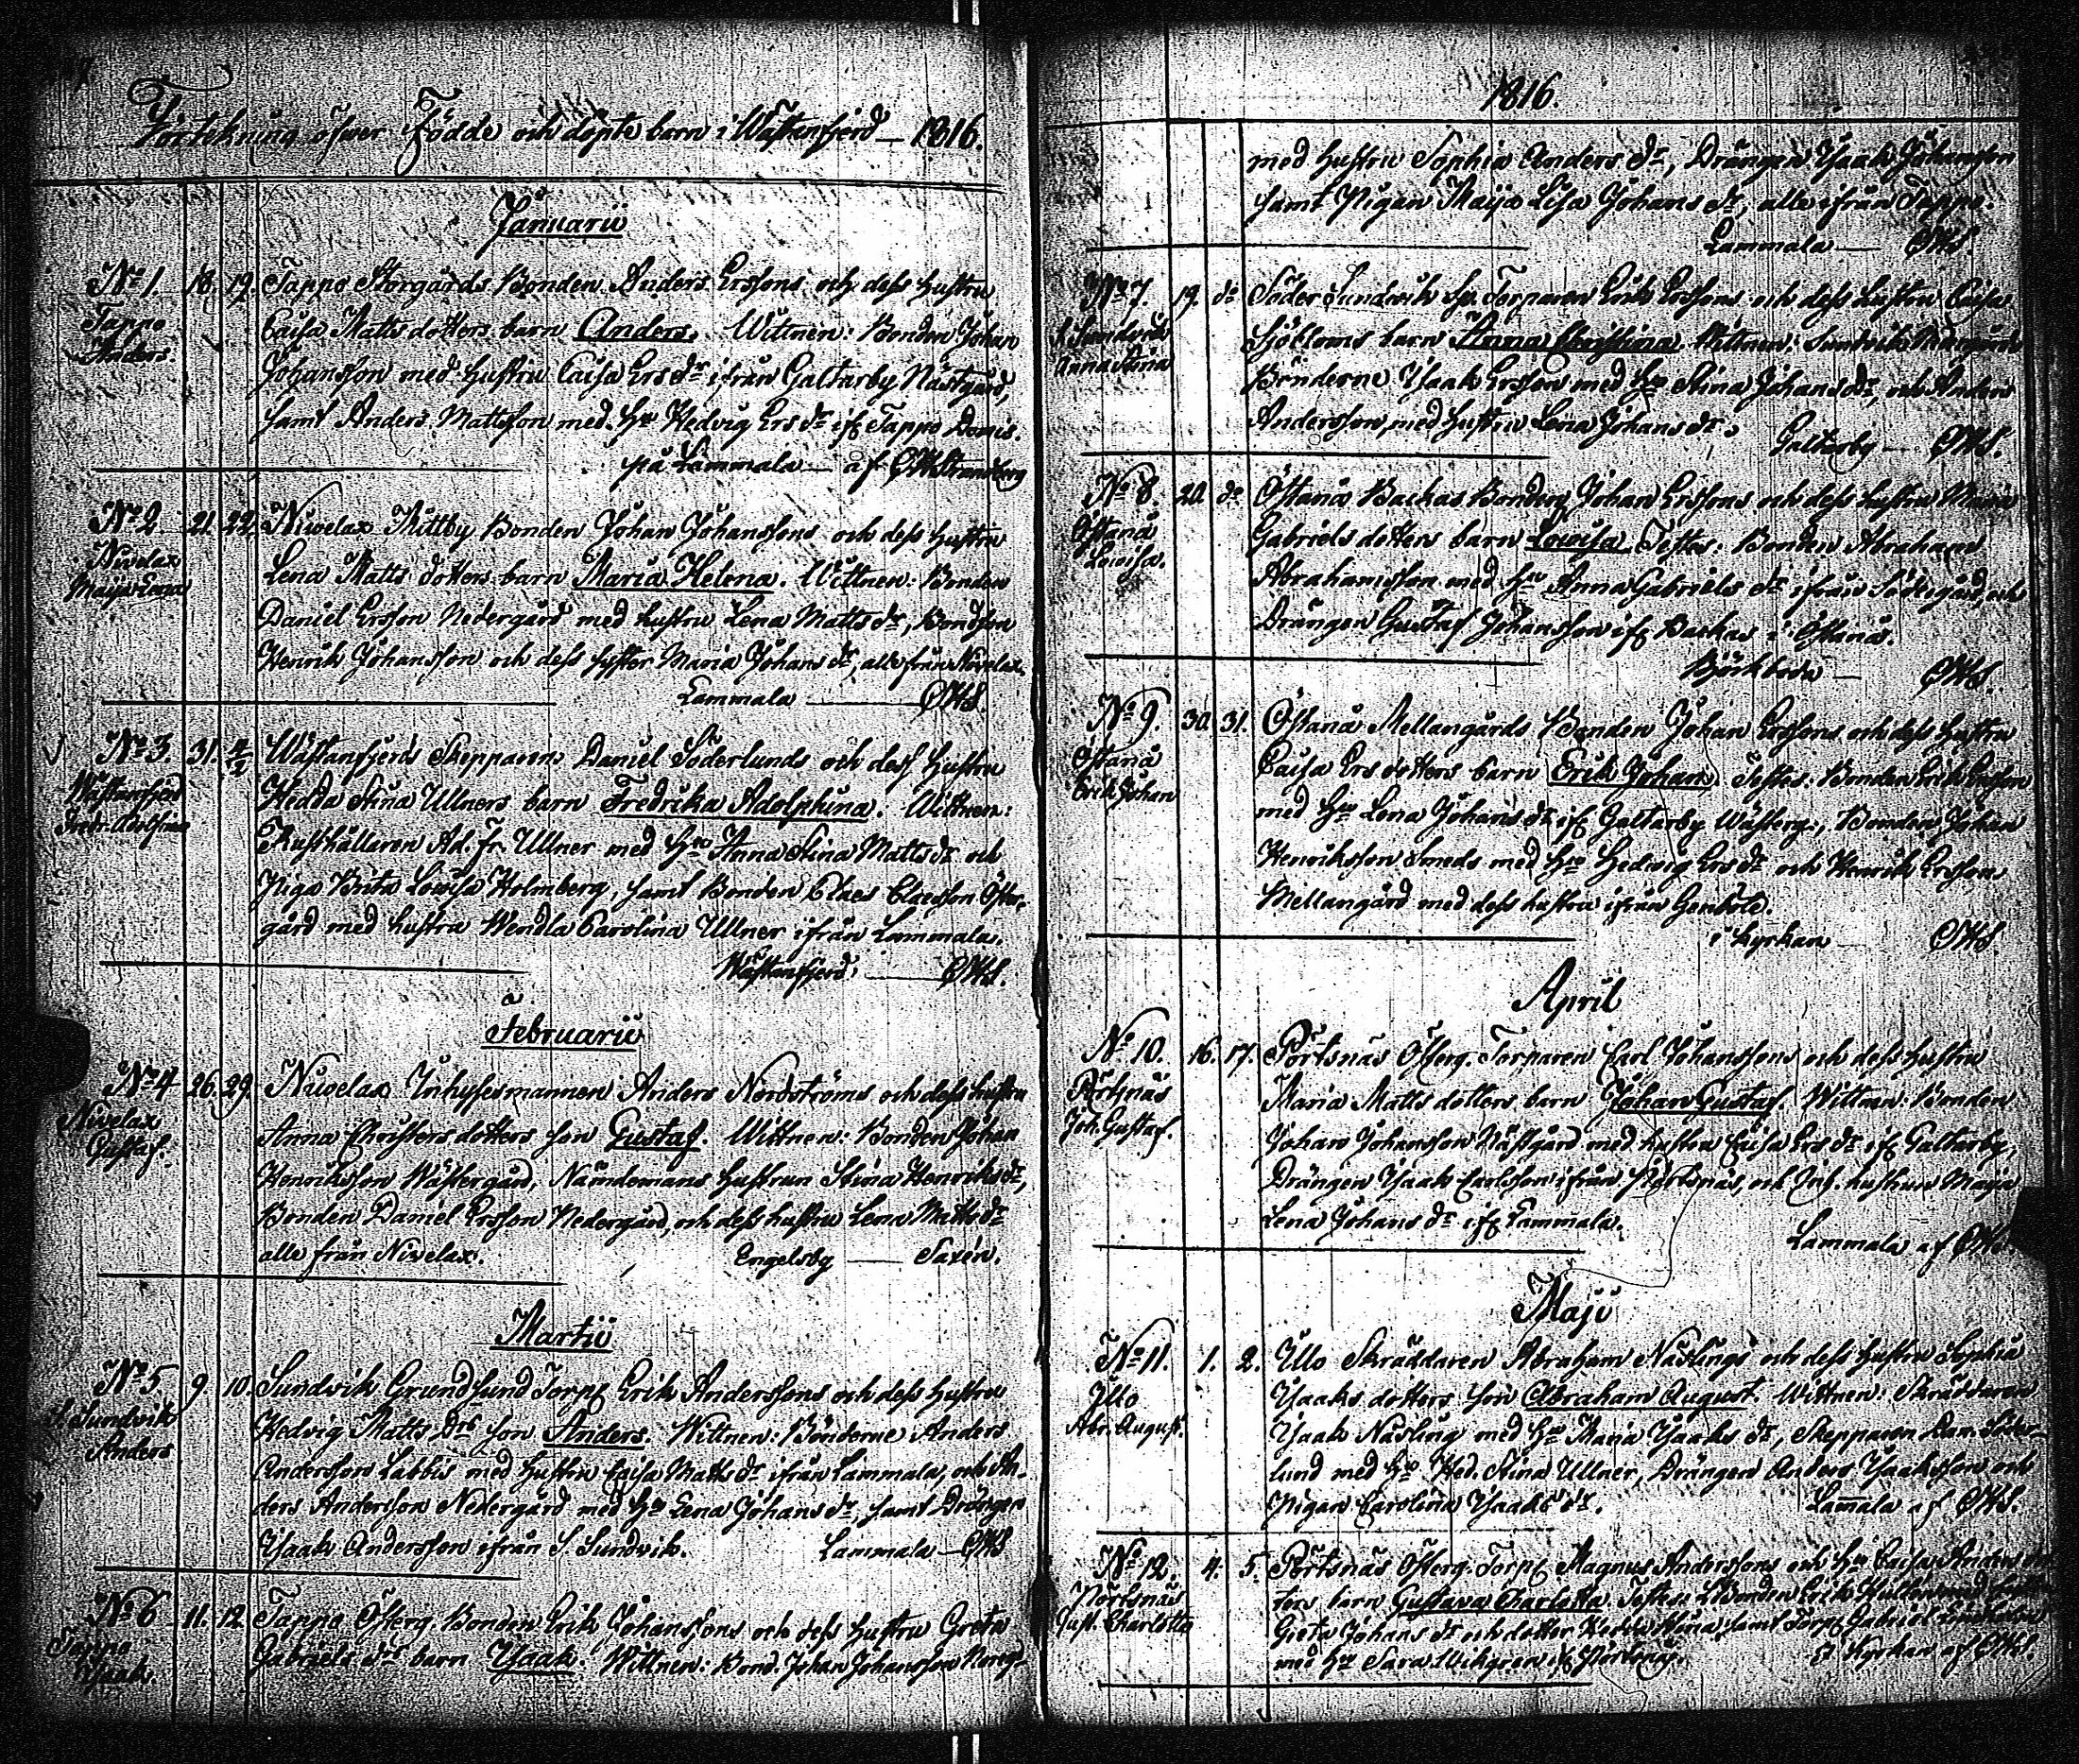 Förtekning öfwer Födde och döpte barn i Wästanfjerd — 1816.
Januarii
No 1. 18. 19. Tappo Storgårds Bonden Anders Erssons och dess hustru
Tappo Anders. Caisa Matts dotters barn Anders. Wittnen: Bonden Johan
Johansson med hustru Caisa Ers dr ifrån Galtarby Nästgård,
samt Anders Mattsson med Hu Hedvig Ers dr if Tappo Danis.
på Lammala — af CWStrandberg
No 2 21. 22. Niwelax Mittby Bonden Johan Johanssons och dess hustru
Niwelax Maija Lena Lena Matts dotters barn Maria Helena. Wittnen: Bonden
Daniel Ersson Nedergård med hustru Lena Matts dr, Bondson
Henrik Johansson och dess syster Maria Johans dr, alle från Niwelax.
Lammala — CWS.
No 3. 31. 4/2 Wästanfjerds Skepparen Daniel Söderlunds och dess hustru
Wästanfjerd Fredr. Adolfina Hedda Stina Ullners barn Fredrika Adolphina. Wittnen:
Rusthållaren Ad. Fr. Ullner med Hu Anna Stina Matts dr och
Piga Brita Lovisa Holmberg, samt Bonden Claes Claesson Öster-
gård med hustru Wendla Carolina Ullner ifrån Lammala.
Wästanfjerd. — CWS.
Februarii
No 4 26. 29. Niwelax Inhysesmannen Anders Nordströms och dess hustru
Nivelax Gustaf. Anna Christers dotters son Gustaf. Wittnen: Bonden Johan
Henriksson Wästergård, Nämdemans hustrun Stina Henriks dr,
Bonden Daniel Ersson Nedergård, och dess hustru Lena Matts dr
alle från Nivelax. Engelsby — Saxén.
Martii
No 5. 9. 10. Sundvik Grundsund Torp. Erik Anderssons och dess hustru
S. Sundvik Anders Hedvig Matts drs son Anders. Wittnen: Bönderne Anders
Andersson Labbis med hustru Caisa Matts dr ifrån Lammala, och An-
ders Andersson Nedergård med Hu Lena Johans dr samt Drängen
Isaak Andersson ifrån S Sundvik. Lammala — CWS
No 6 11. 12. Tappo Österg. Bonden Erik Johanssons och dess hustru Greta
Tappo Isaak. Gabriels drs barn Isaak. Wittnen: Bond. Johan Johansson Norrg.
1816.
med hustru Sophia Anders dr, Drängen Isaak Johansson
samt Pigan Maija Lisa Johans dr, alle ifrån Tappo.
Lammala — CWS.
No 7. 19. do Söder Sundvik Torparen Erik Erssons och dess hustru Caisa
S. Sundvik Anna Stina Sjöbloms barn Anna Christina. Wittnen: Sundvik
Bönderne Isaak Ersson med Hu Stina Johans dr, och Anders
Andersson, med hustru Lena Johans dr. Galtarby — CWS.
No 8. 20. do Östanå Backas Bonden Johan Erssons och dess hustru Maria
Östanå Lovisa. Gabriels dotters barn Lovisa. Testes: Bonden Abraham
Abrahamsson med Hu Anna Gabriels dr ifrån Södergård, och
Drängen Gustaf Johansson if Backas i Östanå.
Björkboda — CWS.
No 9. 30. 31. Östanå Mellangårds Bonden Johan Erssons och dess hustru
Östanå Erik Johan Caisa Ers dotters barn Erik Johan. Testes: Bonden Erik Ersson
med Hu Lena Johans dr if Galtarby Wästerg., Bonden Johan
Henriksson Smeds med Hu Hedvig Ers dr och Henrik Ersson
Mellangård med dess hustru ifrån Genböle.
i kyrkan — CWS.
April
No 10. 16. 17. Pörtsnäs Österg. Torparen Carl Johanssons och dess hustru
Pörtsnäs Joh. Gustaf. Maria Matts dotters barn Johan Gustaf. Wittnen: Bonden
Johan Johansson Nästgård med hustru Caisa Ers dr if Galtarby,
Drängen Isaak Carlsson ifrån Pörtsnäs, och Inh. hustrun Maija
Lena Johans dr if Lammala.
Lammala af CWS.
Maji
No 11. 1. 2. Illo Skräddaren Abraham Näslings och dess hustru Sophia
Illo Abr. August. Isaaks dotters son Abraham August. Wittnen: Skräddaren
Isaak Näsling med Hu Maria Isaaks dr, Skepparen Dan. Söder-
lund med Hu Hed. Stina Ullner, Drängen Anders Isaaksson och
Pigan Carolina Isaaks dr. Lammala af CWS.
No 12. 4. 5. Pörtsnäs Österg. Torp. Magnus Anderssons och Hu Caisa Anders dot-
Pörtsnäs Gust. Charlotta ters barn Gustava Charlotta. Testes: Bonden Erik
Greta Johans dr och dotter Hedda Stina, samt Torp. Gabriel
med Hu Sara Wikgren if Pörtsnäs. Kyrkan af CWS.